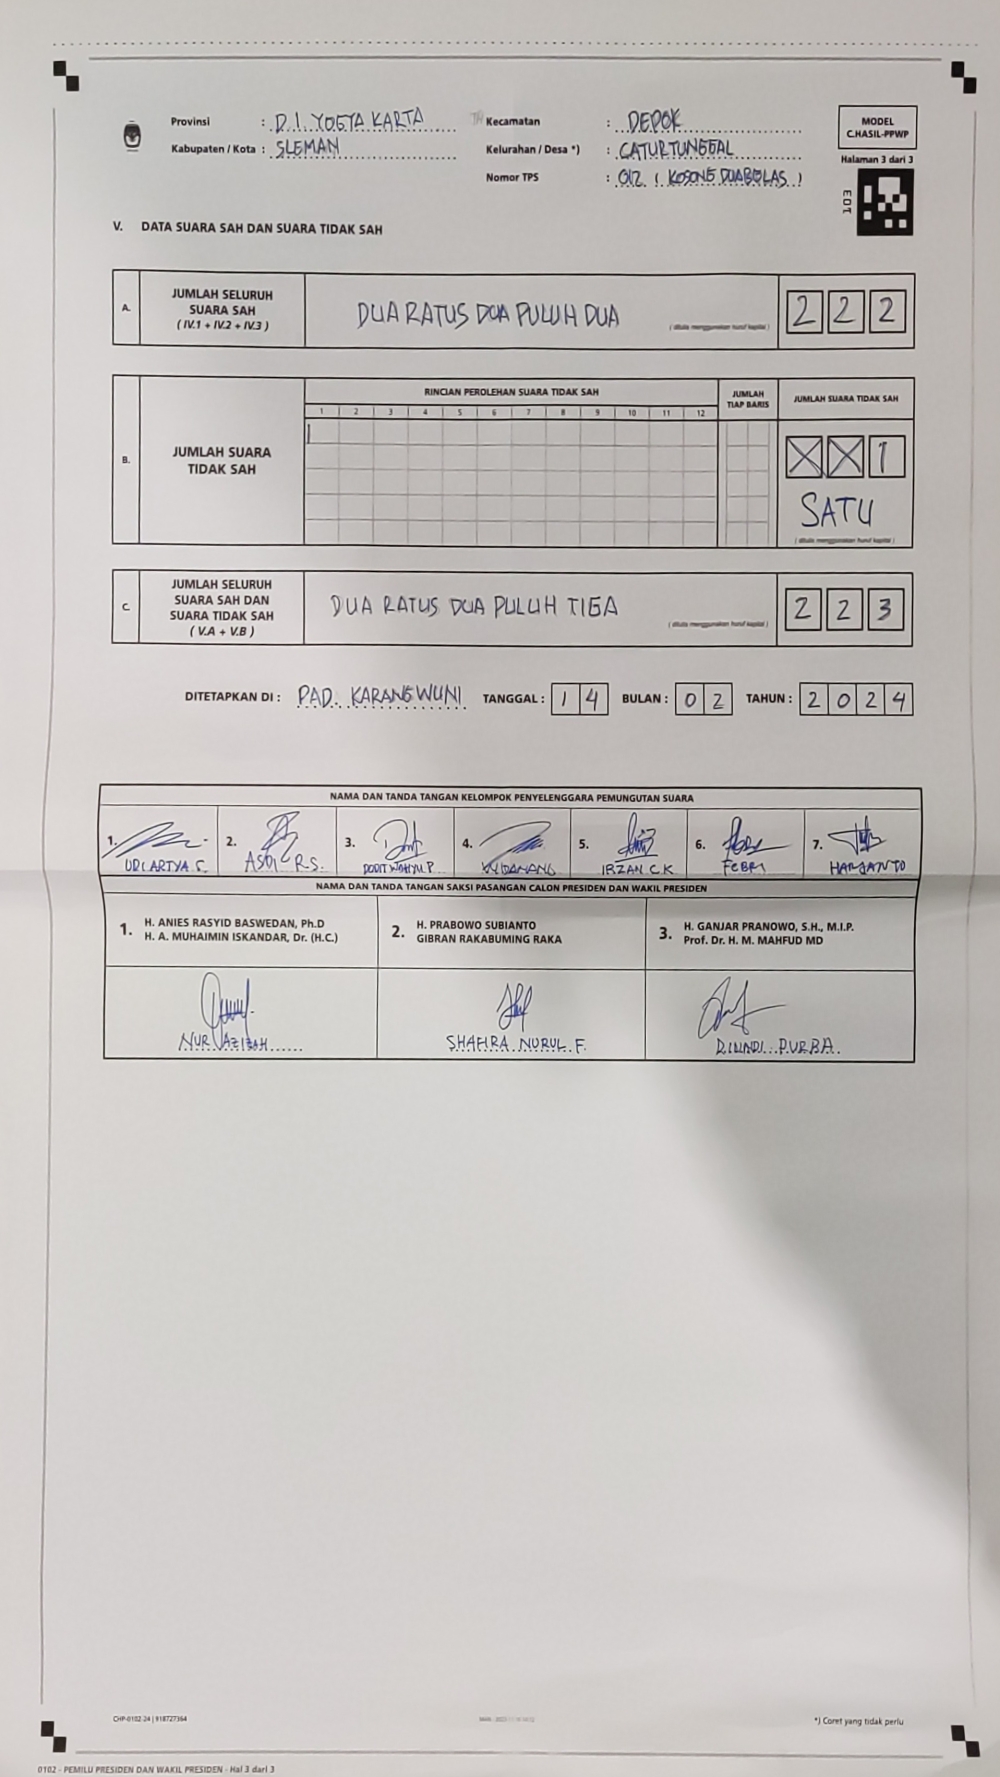 Provinsi : D.I. YOGYA KARTA
Kabupaten / Kota : SLEMAN
Kecamatan : DEPOK
Kelurahan / Desa *) : CATURTUNGGAL
Nomor TPS : 012 ( KOSONG DUABELAS )
MODEL
C.HASIL-PPWP
Halaman 3 dari 3
V. DATA SUARA SAH DAN SUARA TIDAK SAH
A. JUMLAH SELURUH
SUARA SAH
( IV.1 + IV.2 + IV.3 )
DUA RATUS DUA PULUH DUA
( ditulis menggunakan huruf kapital )
2 2 2
B. JUMLAH SUARA
TIDAK SAH
RINCIAN PEROLEHAN SUARA TIDAK SAH
1 2 3 4 5 6 7 8 9 10 11 12
JUMLAH
TIAP BARIS
JUMLAH SUARA TIDAK SAH
X X 1
SATU
( ditulis menggunakan huruf kapital )
C. JUMLAH SELURUH
SUARA SAH DAN
SUARA TIDAK SAH
( V.A + V.B )
DUA RATUS DUA PULUH TIGA
( ditulis menggunakan huruf kapital )
2 2 3
DITETAPKAN DI : PAD. KARANGWUNI TANGGAL : 1 4 BULAN : 0 2 TAHUN : 2 0 2 4
NAMA DAN TANDA TANGAN KELOMPOK PENYELENGGARA PEMUNGUTAN SUARA
1. 2. 3. 4. 5. 6. 7.
R.S. IRZAN C.K FEBRI HARJANTO
NAMA DAN TANDA TANGAN SAKSI PASANGAN CALON PRESIDEN DAN WAKIL PRESIDEN
1. H. ANIES RASYID BASWEDAN, Ph.D
H. A. MUHAIMIN ISKANDAR, Dr. (H.C.)
2. H. PRABOWO SUBIANTO
GIBRAN RAKABUMING RAKA
3. H. GANJAR PRANOWO, S.H., M.I.P.
Prof. Dr. H. M. MAHFUD MD
NUR AZIZAH
SHAFIRA NURUL F.
PURBA
CHP-0102-24 | 918727364
*) Coret yang tidak perlu
0102 - PEMILU PRESIDEN DAN WAKIL PRESIDEN - Hal 3 dari 3